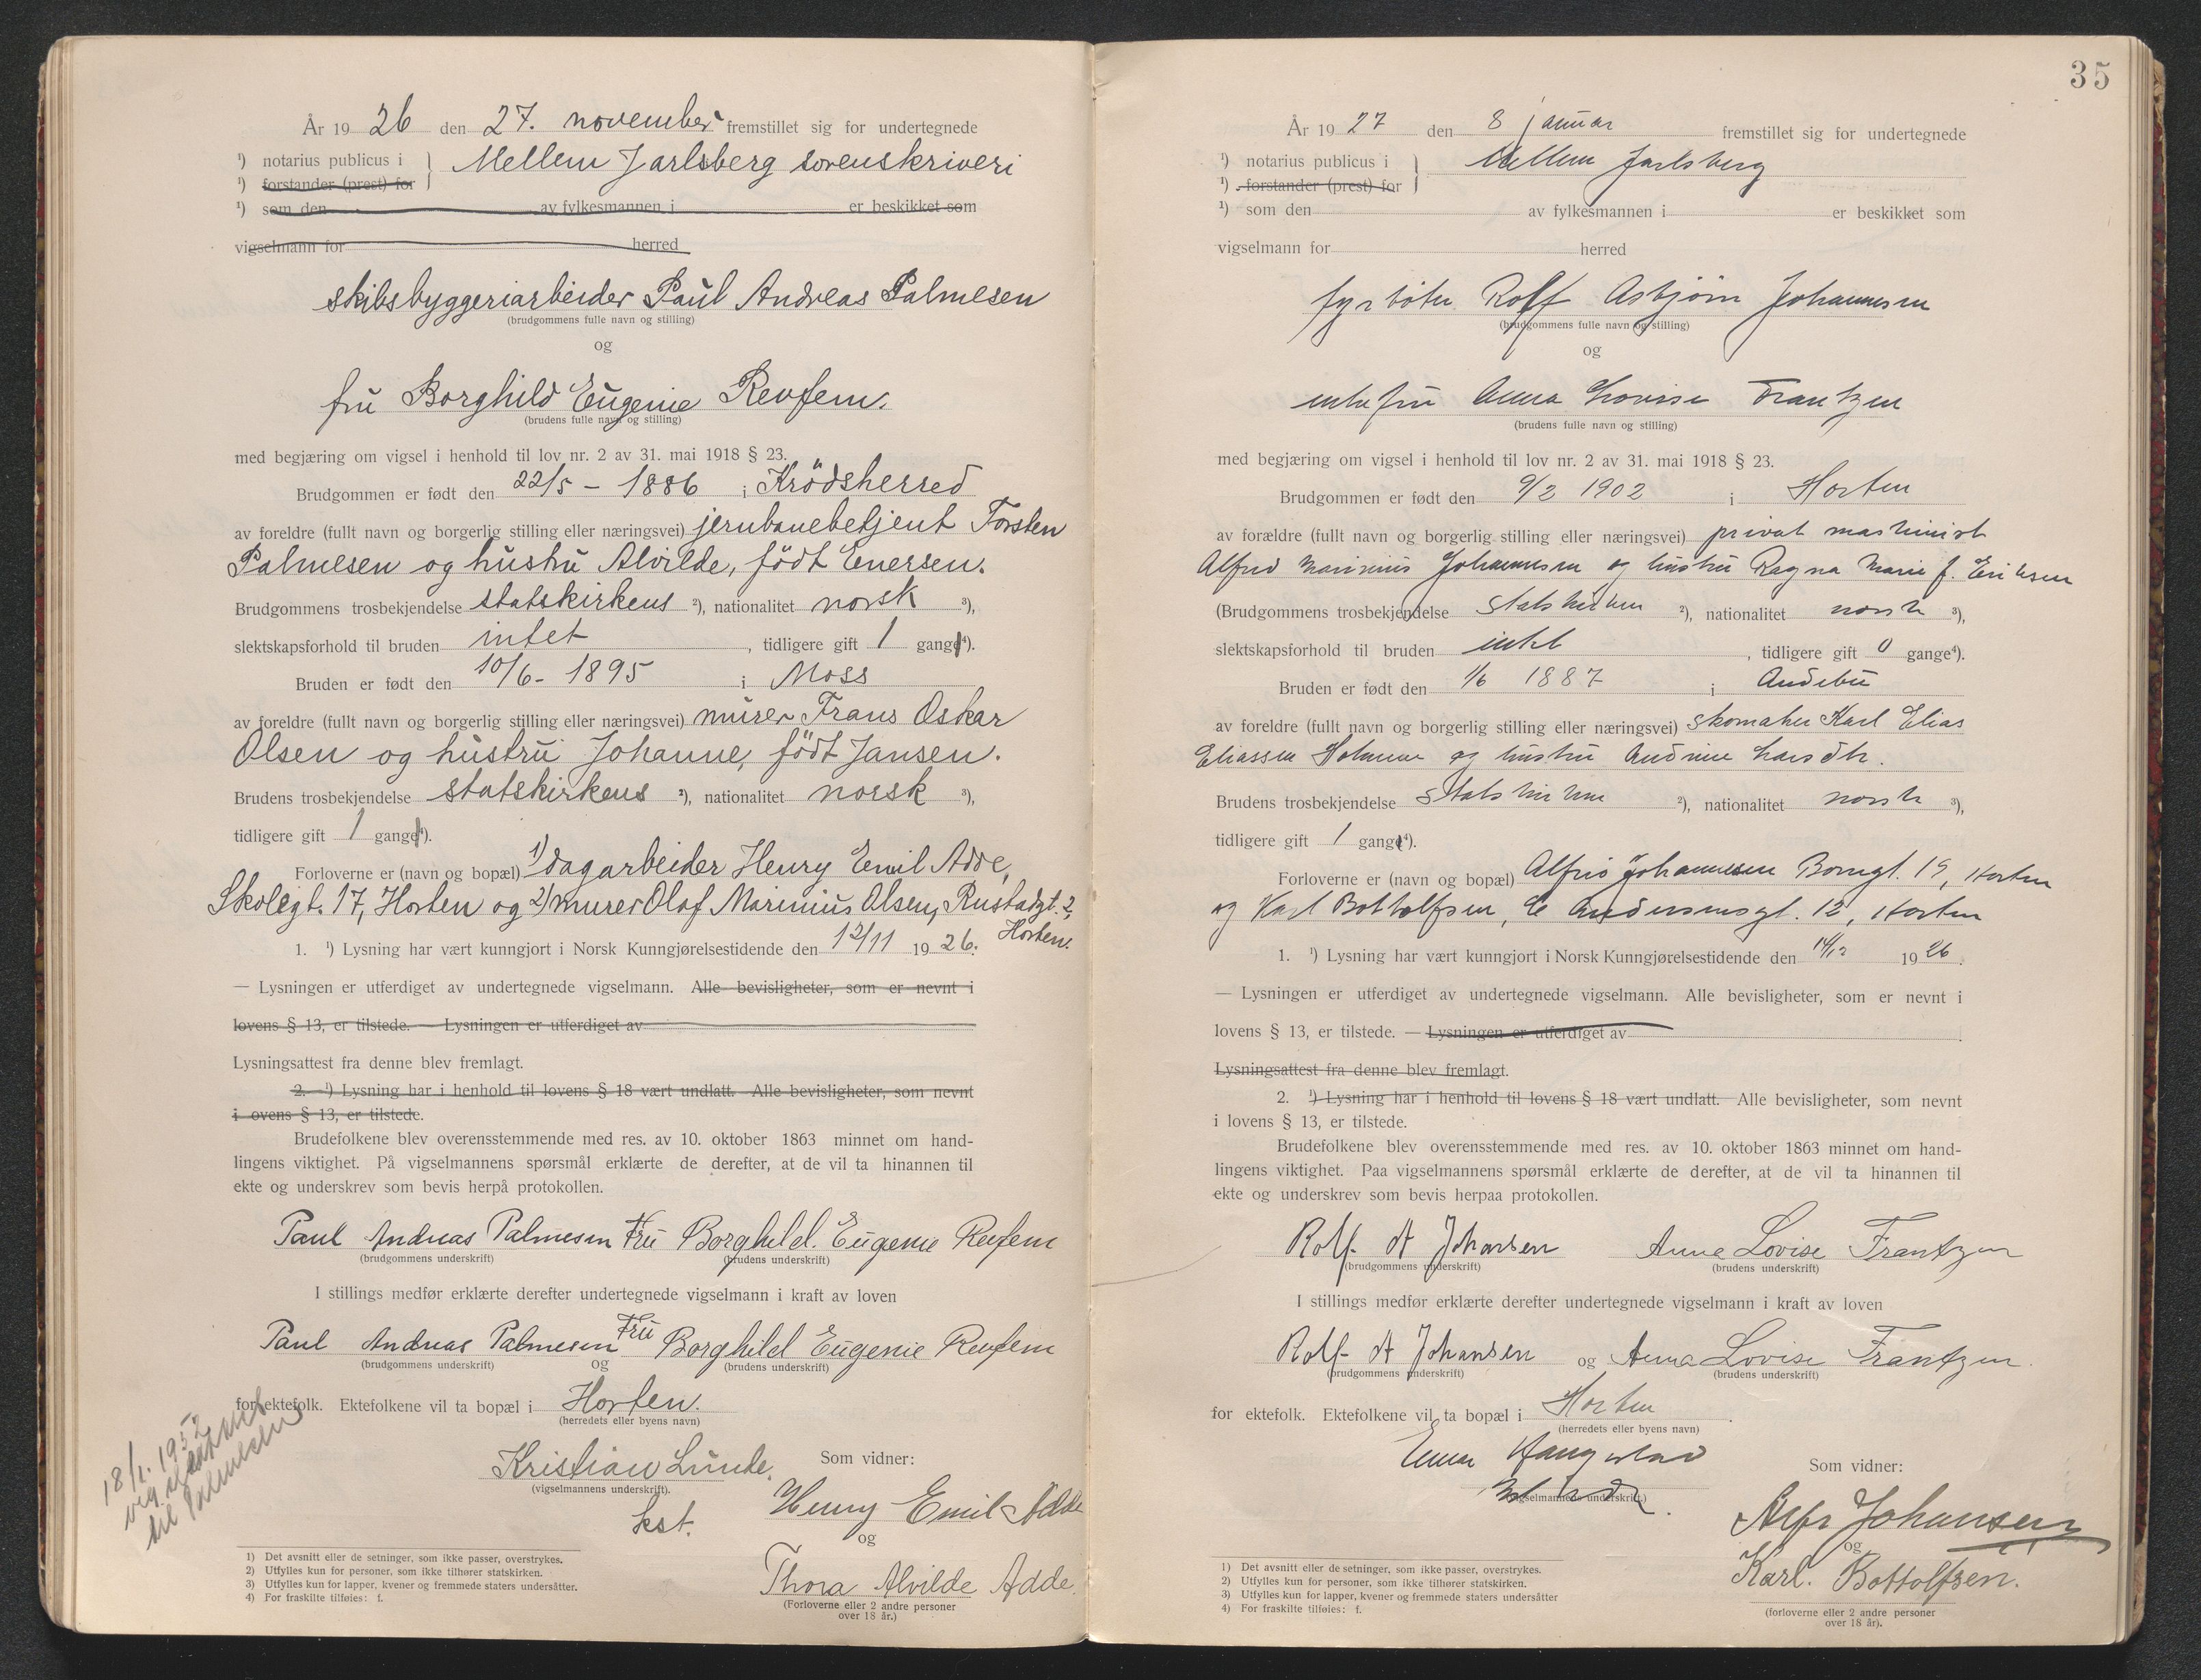 År 19 26 den 27. november fremstillet sig for undertegnede
¹) notarius publicus i } Mellem Jarlsberg sorenskriveri
¹) forstander (prest) for
¹) som den av fylkesmannen i er beskikket som
vigselmann for herred
skibsbyggeriarbeider Paul Andreas Palmesen
(brudgommens fulle navn og stilling)
og
fru Borghild Eugenie Revfem.
(brudens fulle navn og stilling)
med begjæring om vigsel i henhold til lov nr. 2 av 31. mai 1918 § 23.
Brudgommen er født den 22/5 – 1886 i Krödsherred
av foreldre (fullt navn og borgerlig stilling eller næringsvei) jernbanebetjent Torsten
Palmesen og hustru Alvilde, födt Enersen.
Brudgommens trosbekjendelse statskirkens ²), nationalitet norsk ³),
slektskapsforhold til bruden intet, tidligere gift 1 gange⁴).
Bruden er født den 10/6 - 1895 i Moss
av foreldre (fullt navn og borgerlig stilling eller næringsvei) murer Frans Oskar
Olsen og hustru Johanne, födt Jansen.
Brudens trosbekjendelse statskirkens ²), nationalitet norsk ³),
tidligere gift 1 gange⁴).
Forloverne er (navn og bopæl) 1) dagarbeider Henry Emil Adde,
Skolegt. 17, Horten og 2) murer Olaf Marinius Olsen, Rustadgt. 2,
Horten.
1. ¹) Lysning har vært kunngjort i Norsk Kunngjørelsestidende den 12/11 19 26.
— Lysningen er utferdiget av undertegnede vigselmann. Alle bevisligheter, som er nevnt i
lovens § 13, er tilstede. — Lysningen er utferdiget av
Lysningsattest fra denne blev fremlagt.
2. ¹) Lysning har i henhold til lovens § 18 vært undlatt. Alle bevisligheter, som nevnt
i ovens § 13, er tilstede.
Brudefolkene blev overensstemmende med res. av 10. oktober 1863 minnet om hand-
lingens viktighet. På vigselmannens spørsmål erklærte de derefter, at de vil ta hinannen til
ekte og underskrev som bevis herpå protokollen.
Paul Andreas Palmesen Fru Borghild. Eugenie Revfem
(brudgommens underskrift) (brudens underskrift)
I stillings medfør erklærte derefter undertegnede vigselmann i kraft av loven
Paul Andreas Palmesen Fru Borghild Eugenie Revfem
(brudgommens underskrift) og (brudens underskrift)
for ektefolk. Ektefolkene vil ta bopæl i Horten.
(herredets eller byens navn)
18/1. 1952
vig.attest
til Palmesen
Kristian Lunde, Som vidner:
(vigselmannens underskrift).
kst. Henry Emil Adde
og
Thora Alvilde Adde.
(Forloverne eller 2 andre personer
over 18 år.)
1) Det avsnitt eller de setninger, som ikke passer, overstrykes.
2) Utfylles kun for personer, som ikke tilhører statskirken.
3) Utfylles kun for lapper, kvener og fremmede staters undersåtter.
4) For fraskilte tilføies: f.
35
År 19 27 den 8 januar fremstillet sig for undertegnede
¹) notarius publicus i } Mellem Jarlsberg
¹) forstander (prest) for
¹) som den av fylkesmannen i er beskikket som
vigselmann for herred
fyrbøter Rolf Asbjørn Johannesen
(brudgommens fulle navn og stilling)
og
enkefru Anna Lovise Frantzen
(brudens fulle navn og stilling)
med begjæring om vigsel i henhold til lov nr. 2 av 31. mai 1918 § 23.
Brudgommen er født den 9/2 1902 i Horten
av forældre (fullt navn og borgerlig stilling eller næringsvei) privat maskinist
Alfred Marinius Johannesen og hustru Ragna Marie f. Eriksen
(Brudgommens trosbekjendelse statskirken ²), nationalitet norsk ³),
slektskapsforhold til bruden intet, tidligere gift 0 gange⁴).
Bruden er født den 1/6 1887 i Andebu
av foreldre (fullt navn og borgerlig stilling eller næringsvei) skomaker Karl Elias
Eliassen Holmene og hustru Andrine Larsdtr.
Brudens trosbekjendelse statskirken ²), nationalitet norsk ³),
tidligere gift 1 gange⁴).
Forloverne er (navn og bopæl) Alfred Johannesen Bomgt. 19, Horten
og Karl Bottolfsen, C Andersensgt. 12, Horten
1. ¹) Lysning har vært kunngjort i Norsk Kunngjørelsestidende den 14/12 19 26.
— Lysningen er utferdiget av undertegnede vigselmann. Alle bevisligheter, som er nevnt i
lovens § 13, er tilstede. — Lysningen er utferdiget av
Lysningsattest fra denne blev fremlagt.
2. ¹) Lysning har i henhold til lovens § 18 vært undlatt. Alle bevisligheter, som nevnt
i lovens § 13, er tilstede.
Brudefolkene blev overensstemmende med res. av 10. oktober 1863 minnet om hand-
lingens viktighet. Paa vigselmannens spørsmål erklærte de derefter, at de vil ta hinannen til
ekte og underskrev som bevis herpaa protokollen.
Rolf A Johansen Anna Lovise Frantzen
(brudgommens underskrift) (brudens underskrift)
I stillings medfør erklærte derefter undertegnede vigselmann i kraft av loven
Rolf A Johansen og Anna Lovise Frantzen.
(brudgommens underskrift) (brudens underskrift)
for ektefolk. Ektefolkene vil ta bopæl i Horten.
(herredets eller byens navn)
Som vidner:
(vigselmannens underskrift)
Alfr Johansen
og
Karl. Bottolfsen.
(forloverne eller 2 andre personer
over 18 år).
1) Det avsnitt eller de setninger, som ikke passer, overstrykes.
2) Utfylles kun for personer, som ikke tilhører statskirken.
3) Utfylles kun for lapper, kvener og fremmede staters undersåtter
4) For fraskilte tilføies: f.